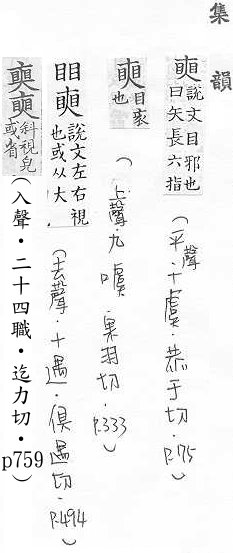 集韻
說文目邪也
曰矢長六指
（平聲．十虞．恭于切．P.75）
目衺
也
（上聲．九噳．果羽切．P.333）
䀠 說文左右視
也或从大
（去聲．十遇．俱遇切．P.494）
斜視皃
或省
（入聲．二十四職．迄力切．p759）